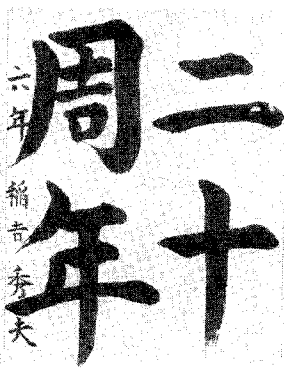 二十
周年
六年 稲吉秀夫